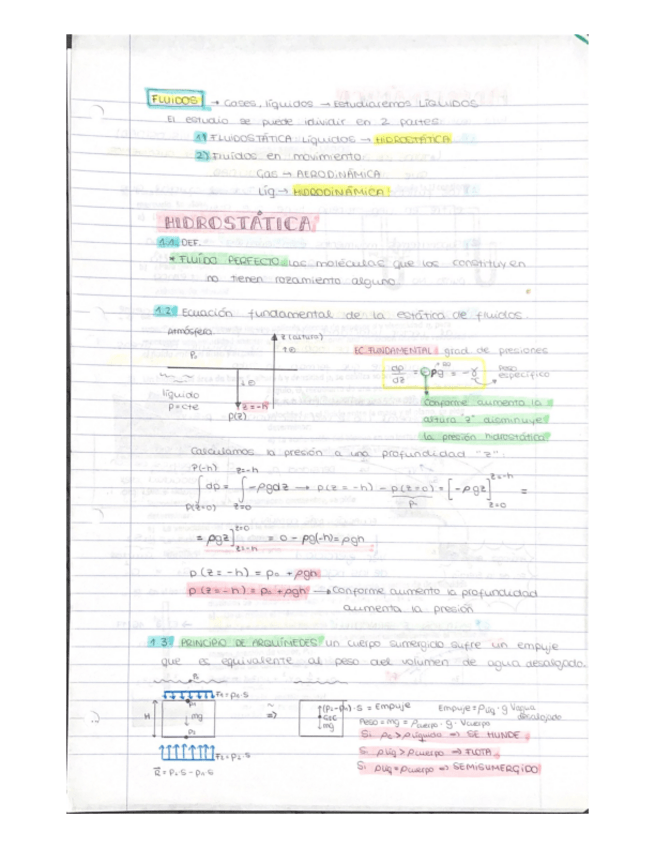 FLUIDOS → Gases, líquidos → Estudiaremos LÍQUIDOS
El estudio se puede dividir en 2 partes:
1) FLUIDOSTÁTICA Líquidos → HIDROSTÁTICA
2) Fluidos en movimiento
Gas → AERODINÁMICA
Líq → HIDRODINÁMICA
HIDROSTÁTICA
1.1. DEF.
* FLUIDO PERFECTO las moléculas que los constituyen
no tienen rozamiento alguno
1.2 Ecuación fundamental de la estática de fluidos.
Atmósfera
z (altura)
P₀
líquido
ρ=cte
z=-h
p(z)
EC. FUNDAMENTAL grad de presiones
dp/dz = -ρg = -γ
Peso
específico
Conforme aumenta la
altura "z" disminuye
la presión hidrostática
Calculamos la presión a una profundidad "z":
P(-h) z=-h
∫dp = ∫-ρgdz → p(z=-h) - p(z=0) = [-ρgz] z=-h z=0 =
P(z=0) z=0
P₀
= ρgz] z=0 z=-h = 0 - ρg(-h) = ρgh
p (z=-h) = p₀ + ρgh
p (z=-h) = p₀ + ρgh → Conforme aumento la profundidad
aumenta la presión
1.3. PRINCIPIO DE ARQUÍMEDES un cuerpo sumergido sufre un empuje
que es equivalente al peso del volumen de agua desalojado.
H
mg
⇒
CDG
mg
(p₂-p₁)·S = Empuje
Empuje = ρliq · g Vagua
desalojado
Peso = mg = ρcuerpo · g · Vcuerpo
Si ρc > ρlíquido ⇒ SE HUNDE
Si ρliq > ρcuerpo ⇒ FLOTA
Si ρliq = ρcuerpo ⇒ SEMISUMERGIDO
F₂ = p₂·S